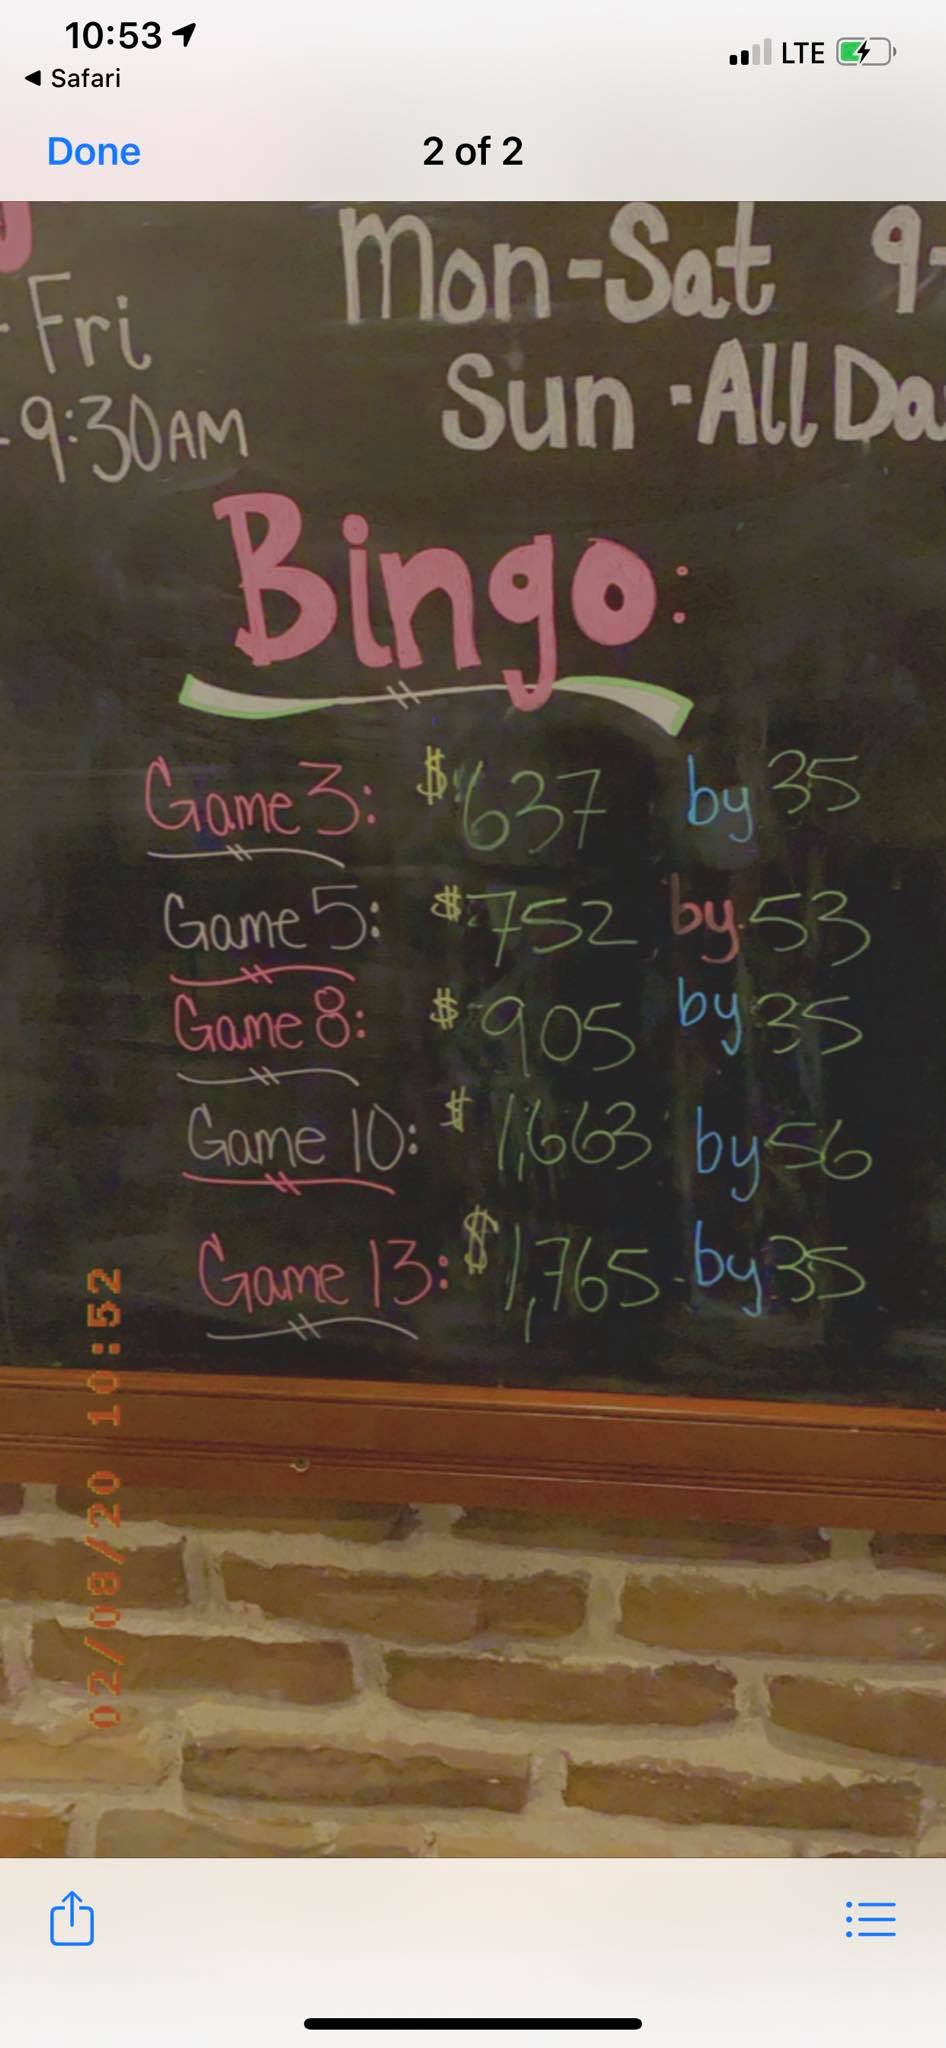 10:53
LTE
Safari
Done
2 of 2
Mon-Sat 9-
- Fri
Sun - All Da
-9:30AM
Bingo:
Game 3: $637 by 35
Game 5: $752 by 53
Game 8: $905 by 35
Game 10: $1,663 by 56
Game 13: $1,765 by 35
02/08/20 10:52